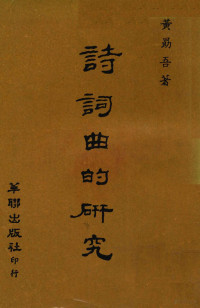 黃勗吾著
詩詞曲的研究
華聯出版社
印行